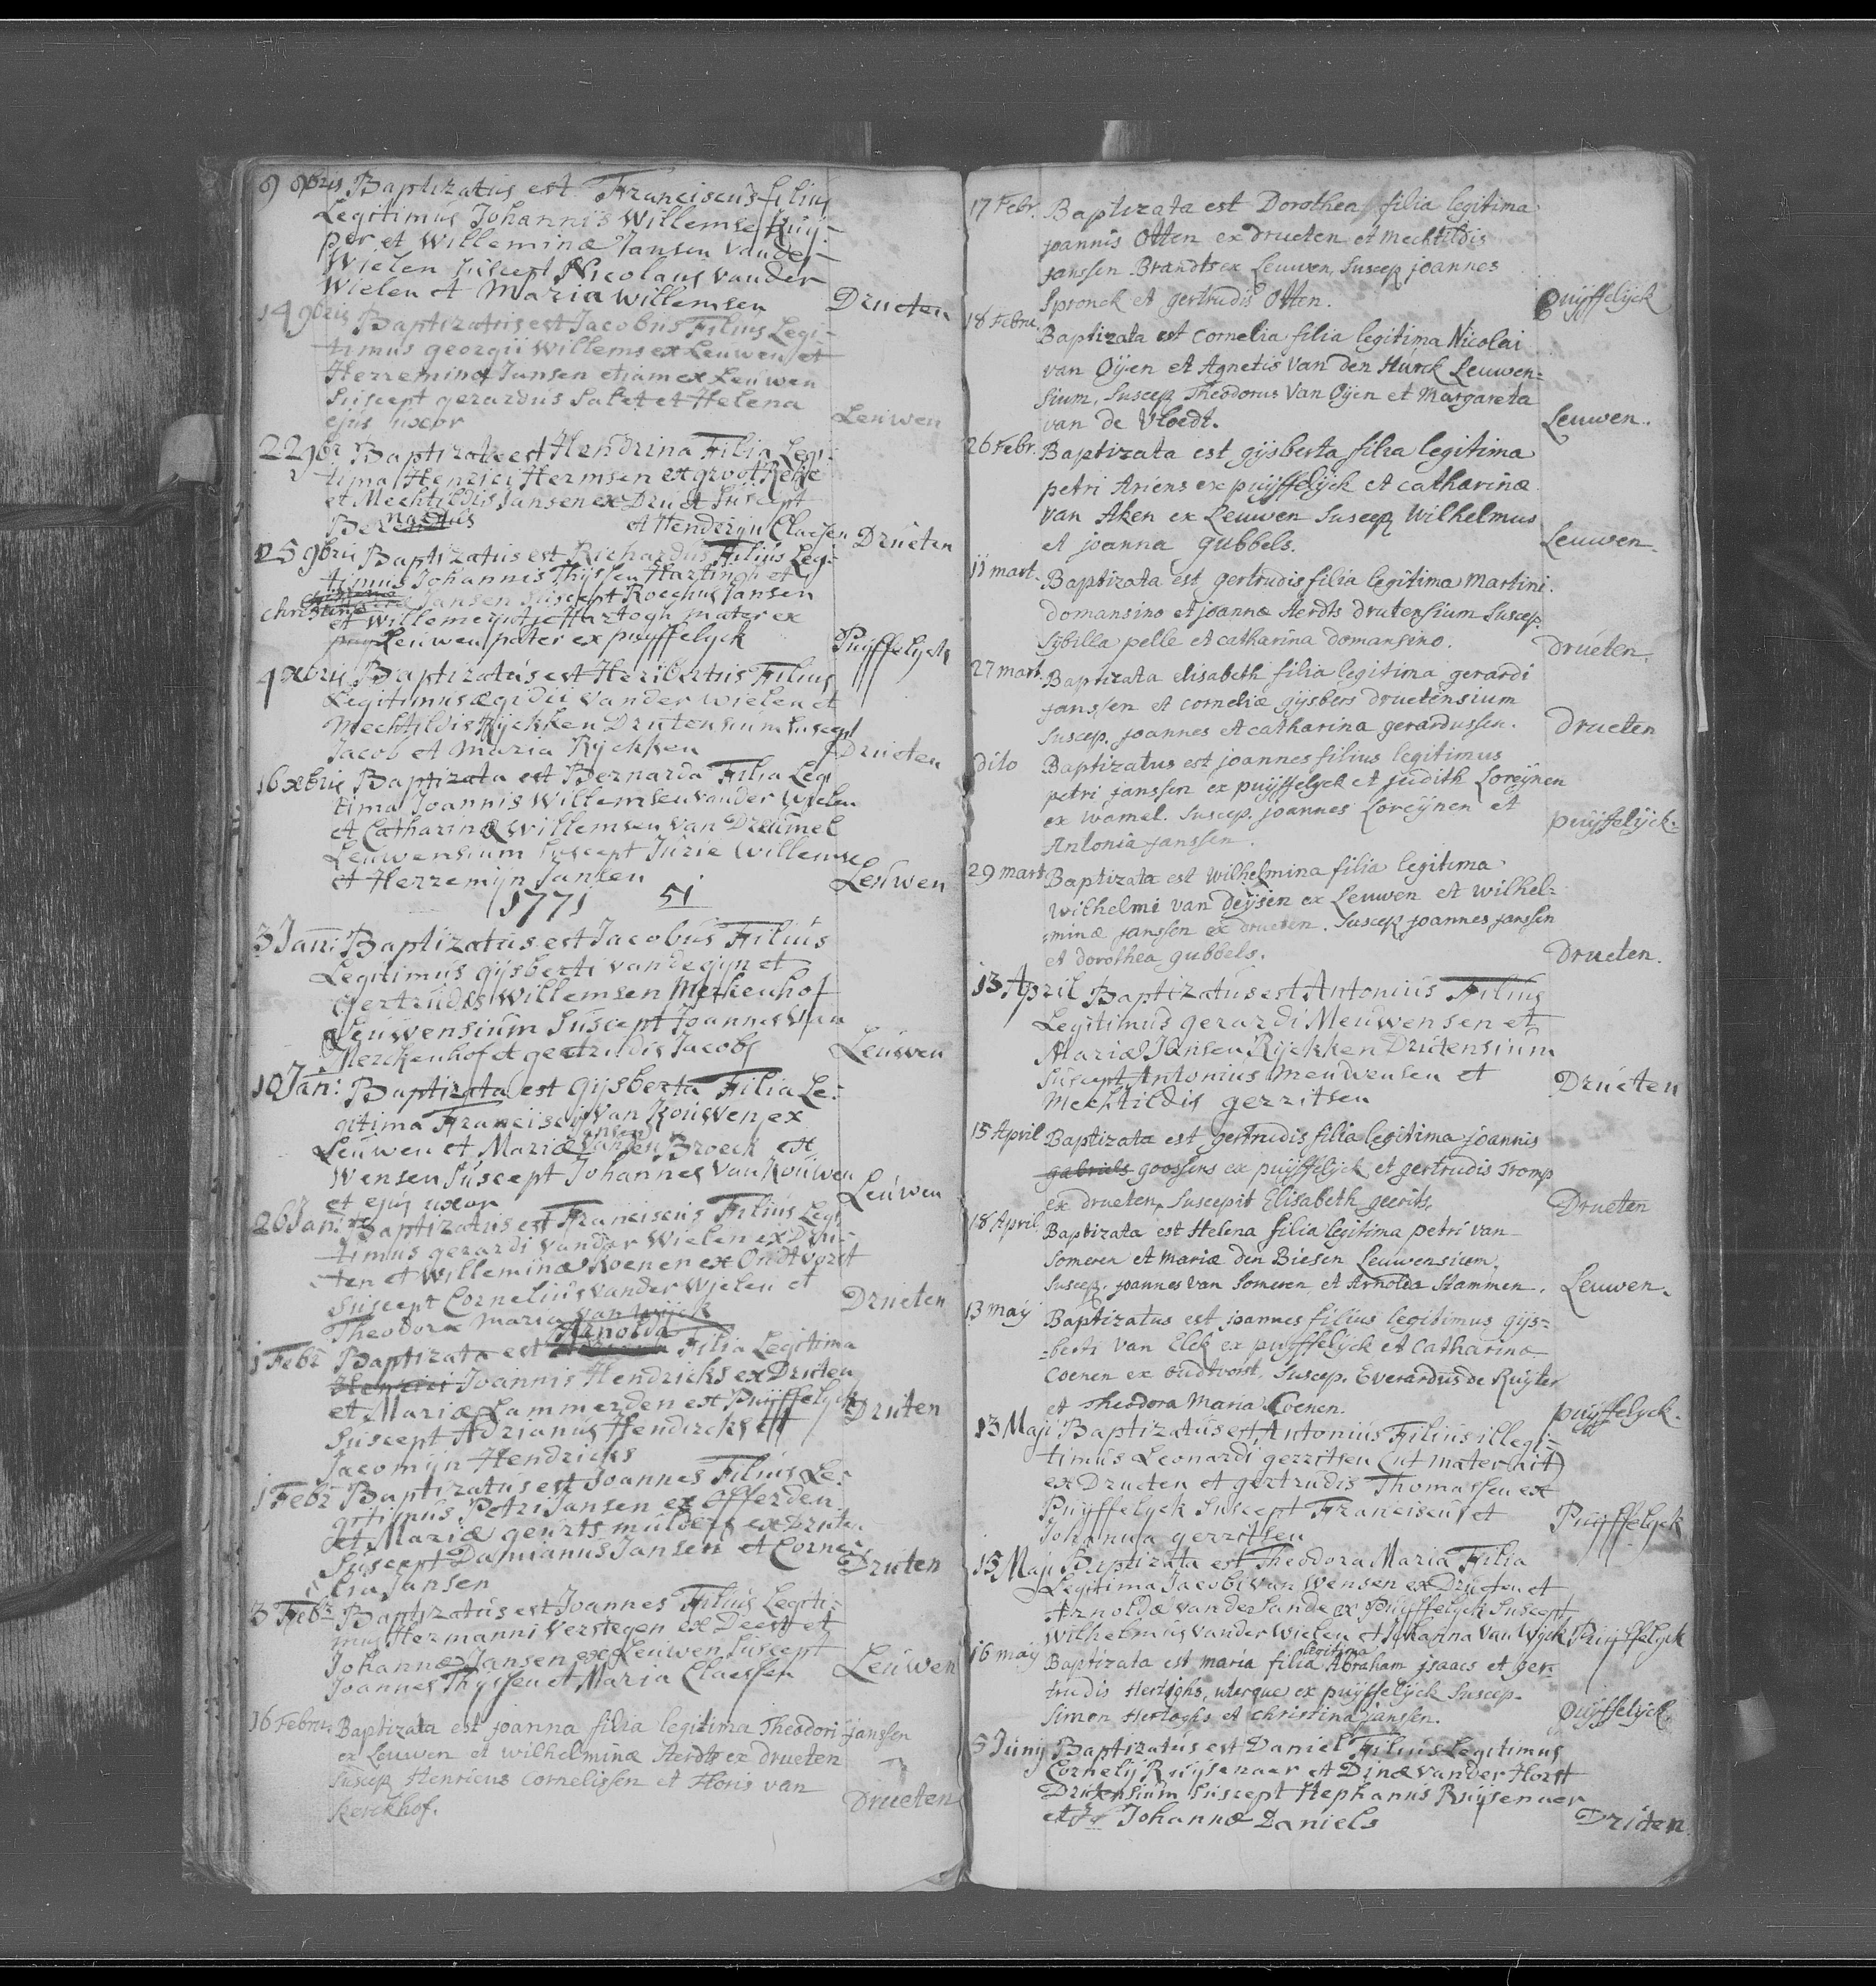 9 9bris Baptizatus est Franciscus filius
Legitimus Johannis Willemse Kuij-
per et Willeminæ Jansen vander
Wielen suscept Nicolaus vander
Wielen et Maria Willemsen Drueten
14 9bris Baptizatus est Jacobus Filius Legi-
timus georgii Willems ex Leuwen et
Herreminæ Jansen etiam ex Leuwen
Suscept gerardus Salet et Helena
ejus uxor Leuwen
22 9br Baptizata est Hendrina Filia Legi-
tima Henrici Hermsen ex groot Reke
et Mechtildis Jansen ex Drut Suscept
Bernardus et Hendrijn Claesen Drueten
25 9bris Baptizatus est Richardus Filius Legi-
timus Johannis Thijssen Hartingh et
Christinæ Jansen Suscept Rocchus Jansen
et Willemeijntje Hartogh mater ex
Leuwen pater ex puijffelyck Puijffelyck
4 xbris Baptizatus est Heribertus Filius
Legitimus ægidii vander wielen et
Mechtildis Rijckken Drutensium Suscept
Jacob et Maria Rijckken Drueten
16 xbris Baptizata est Bernarda Filia Legi
tima Joannis Willemsen vander Wielen
et Catharinæ Willemsen van Dreumel
Leuwensium Suscept Jurie Willemse
et Herremijn Jansen Leuwen
1771 51
3 Jan: Baptizatus est Jacobus Filius
Legitimus gijsberti van degijn et
Gertrudis Willemsen Merkenhof
Leuwensium Suscept Joannes van
Merckenhof et gertrudis Jacobs Leuwen
10 Jan: Baptizata est Gijsberta Filia Le-
gitima Francisci van Kouwen ex
Leuwen et Mariæ Jansen Broeck ex
Wensen Suscept Johannes van Kouwen
et ejus uxor Leuwen
26 Jan: Baptizatus est Franciscus Filius Legi
timus gerardi vander Wielen ex Dru-
ten et Willeminæ Koenen ex Oudtvorst
Suscept Cornelius vander Wielen et
Theodora Maria van Wijck Drueten
1 Febr Baptizata est Arnolda Filia Legitima
Henrici Joannis Hendricks ex Druten
et Mariæ Lammerden ex Puijffelyck
Suscept Adrianus Hendricks et Druten
Jacomijn Hendricks
1 Febr Baptizatus est Joannes Filius Le-
gitimus Petri Jansen ex Offerden
et Mariæ geurts mulders ex Druten
Suscept Damianus Jansen et Corne-
lia Jansen Druten
3 Febr Baptizatus est Joannes Filius Legiti-
mus Hermanni Verstegen ex Deest et
Johannæ Jansen ex Leuwen Suscept
Joannes Thijssen et Maria Claessen Leuwen
16 Febru. Baptizata est joanna filia legitima Theodori janssen
ex Leuwen et wilhelminæ Aerdts ex drueten
suscep Henricus Cornelissen et Floris van
Kerckhof. Drueten
17 Febr. Baptizata est Dorothea filia legitima
joannis Otten ex drueten et Mechtildis
janssen Brandts ex Leuwen, Suscep joannes
Spronck et gertrudis Otten. Puijffelijck
18 Febru. Baptizata est Cornelia filia legitima Nicolai
van Oijen et Agnetis Van den Hurck Leuwen=
sium, Suscep Theodorus Van Oijen et Margareta
van de Vloedt. Leuwen.
26 Febr. Baptizata est gijsberta filia legitima
petri Ariens ex puijffelijck et catharinæ
van Aken ex Leuwen Suscep Wilhelmus
et joanna gubbels. Leuwen.
11 mart. Baptizata est gertrudis filia legitima Martini
domansino et joannæ Aerdts drutensium Suscep.
Sybilla pelle et catharina domansino. drueten.
27 mart. Baptizata elisabeth filia legitima gerardi
janssen et corneliæ gijsbers druetensium
Suscep. joannes et catharina gerardussen. drueten
dito Baptizatus est joannes filius legitimus
petri janssen ex puijffelyck et judith Loreijnen
ex wamel. Suscep. joannes Loreijnen et
Antonia janssen. puijffelijck.
29 mart. Baptizata est wilhelmina filia legitima
wilhelmi van deijsen ex Leuwen et wilhel=
=minæ janssen ex drueten. Suscep joannes janssen
et dorothea gubbels. Drueten.
13 April Baptizatus est Antonius Filius
Legitimus gerardi Meuwensen et
Mariæ Jansen Rijckken Drutensium
Suscept Antonius Meuwensen et
Mechtildis gerritsen Drueten
15 April Baptizata est gertrudis filia legitima joannis
gabriels goossens ex puijffelijck et gertrudis Tromp
ex drueten, Suscepit Elisabeth geerits. Drueten
18 April Baptizata est Helena filia legitima petri van
Someren et mariæ den Biesen Leuwensium.
Suscep. joannes Van Someren et Arnolda Hammen. Leuwen.
13 maij Baptizatus est joannes filius legitimus gijs=
=berti Van Elck ex puijffelijck et Catharina
Coenen ex oudtvorst, Suscep. Everardus de Ruijter
et Theodora Maria Coenen. puijffelyck.
13 Maji Baptizatus est Antonius Filius illegi-
timus Leonardi gerritsen (ut mater ait)
ex Drueten et gertrudis Thomassen ex
Puijffelyck Suscept Franciscus et
Johanna gerritsen Puijffelyck
15 Maji Baptizata est Theodora Maria Filia
Legitima Jacobi van Wensen ex Drueten et
Arnoldæ vander Sande ex Puijffelyck Suscept
Wilhelmus vander Wielen et Johanna van Wijck Puijffelyck
16 maij Baptizata est maria filia legitima Abraham jsaacs et ger-
trudis Hertoghs, uterque ex puijffelijck Suscep.
Simon Hertoghs et christina janssen. puijffelijck
5 Junij Baptizatus est Daniel Filius Legitimus
Cornelij Ruijsenaer et Dinæ vander Horst
Drutensium Suscept Stephanus Ruijsenaer
et Johannæ Daniels Druten